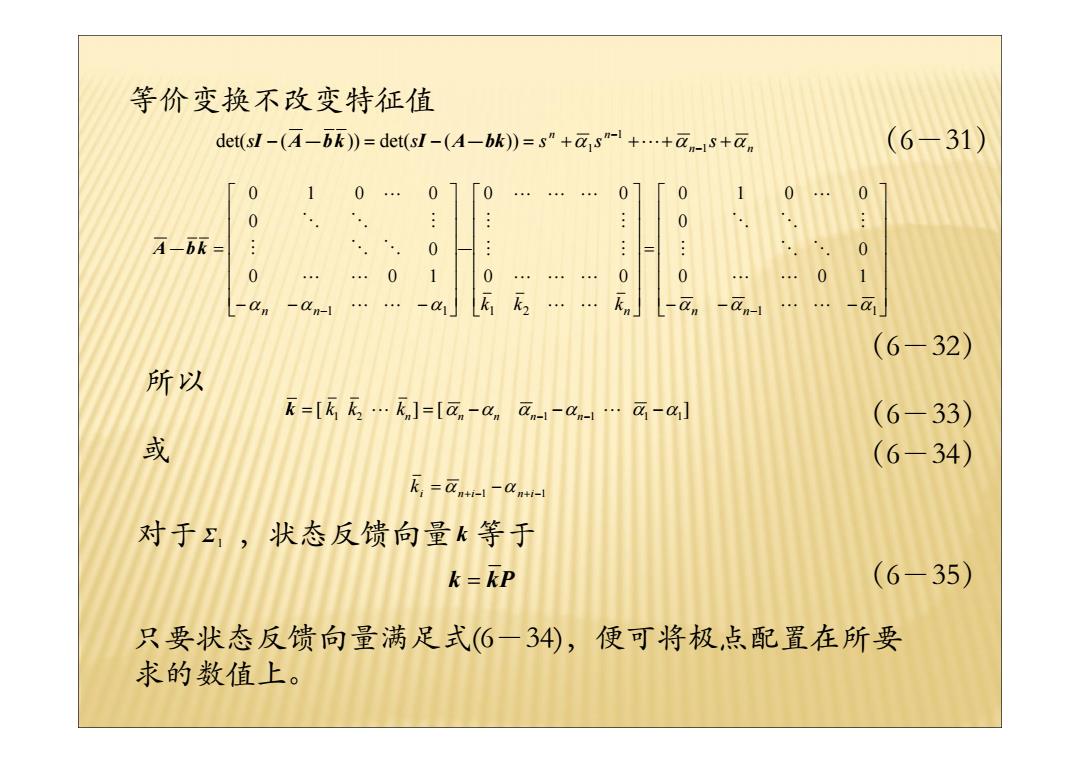 等价变换不改变特征值
det(sI－(A̅－b̅k̅)) = det(sI－(A－bk)) = sⁿ + α̅₁sⁿ⁻¹ + ⋯ + α̅ₙ₋₁s + α̅ₙ （6－31）
A̅－b̅k̅ = [0 1 0 ⋯ 0; 0 ⋱ ⋱ ⋮; ⋮ ⋱ ⋱ 0; 0 ⋯ ⋯ 0 1; －αₙ －αₙ₋₁ ⋯ ⋯ －α₁] － [0 ⋯ ⋯ ⋯ 0; ⋮ ⋮; ⋮ ⋮; 0 ⋯ ⋯ ⋯ 0; k̅₁ k̅₂ ⋯ ⋯ k̅ₙ] = [0 1 0 ⋯ 0; 0 ⋱ ⋱ ⋮; ⋮ ⋱ ⋱ 0; 0 ⋯ ⋯ 0 1; －α̅ₙ －α̅ₙ₋₁ ⋯ ⋯ －α̅₁]
（6－32）
所以
k̅ = [k̅₁ k̅₂ ⋯ k̅ₙ] = [α̅ₙ－αₙ α̅ₙ₋₁－αₙ₋₁ ⋯ α̅₁－α₁] （6－33）
或 （6－34）
k̅ᵢ = α̅ₙ₊ᵢ₋₁－αₙ₊ᵢ₋₁
对于Σ₁，状态反馈向量k等于
k = k̅P （6－35）
只要状态反馈向量满足式(6－34)，便可将极点配置在所要
求的数值上。